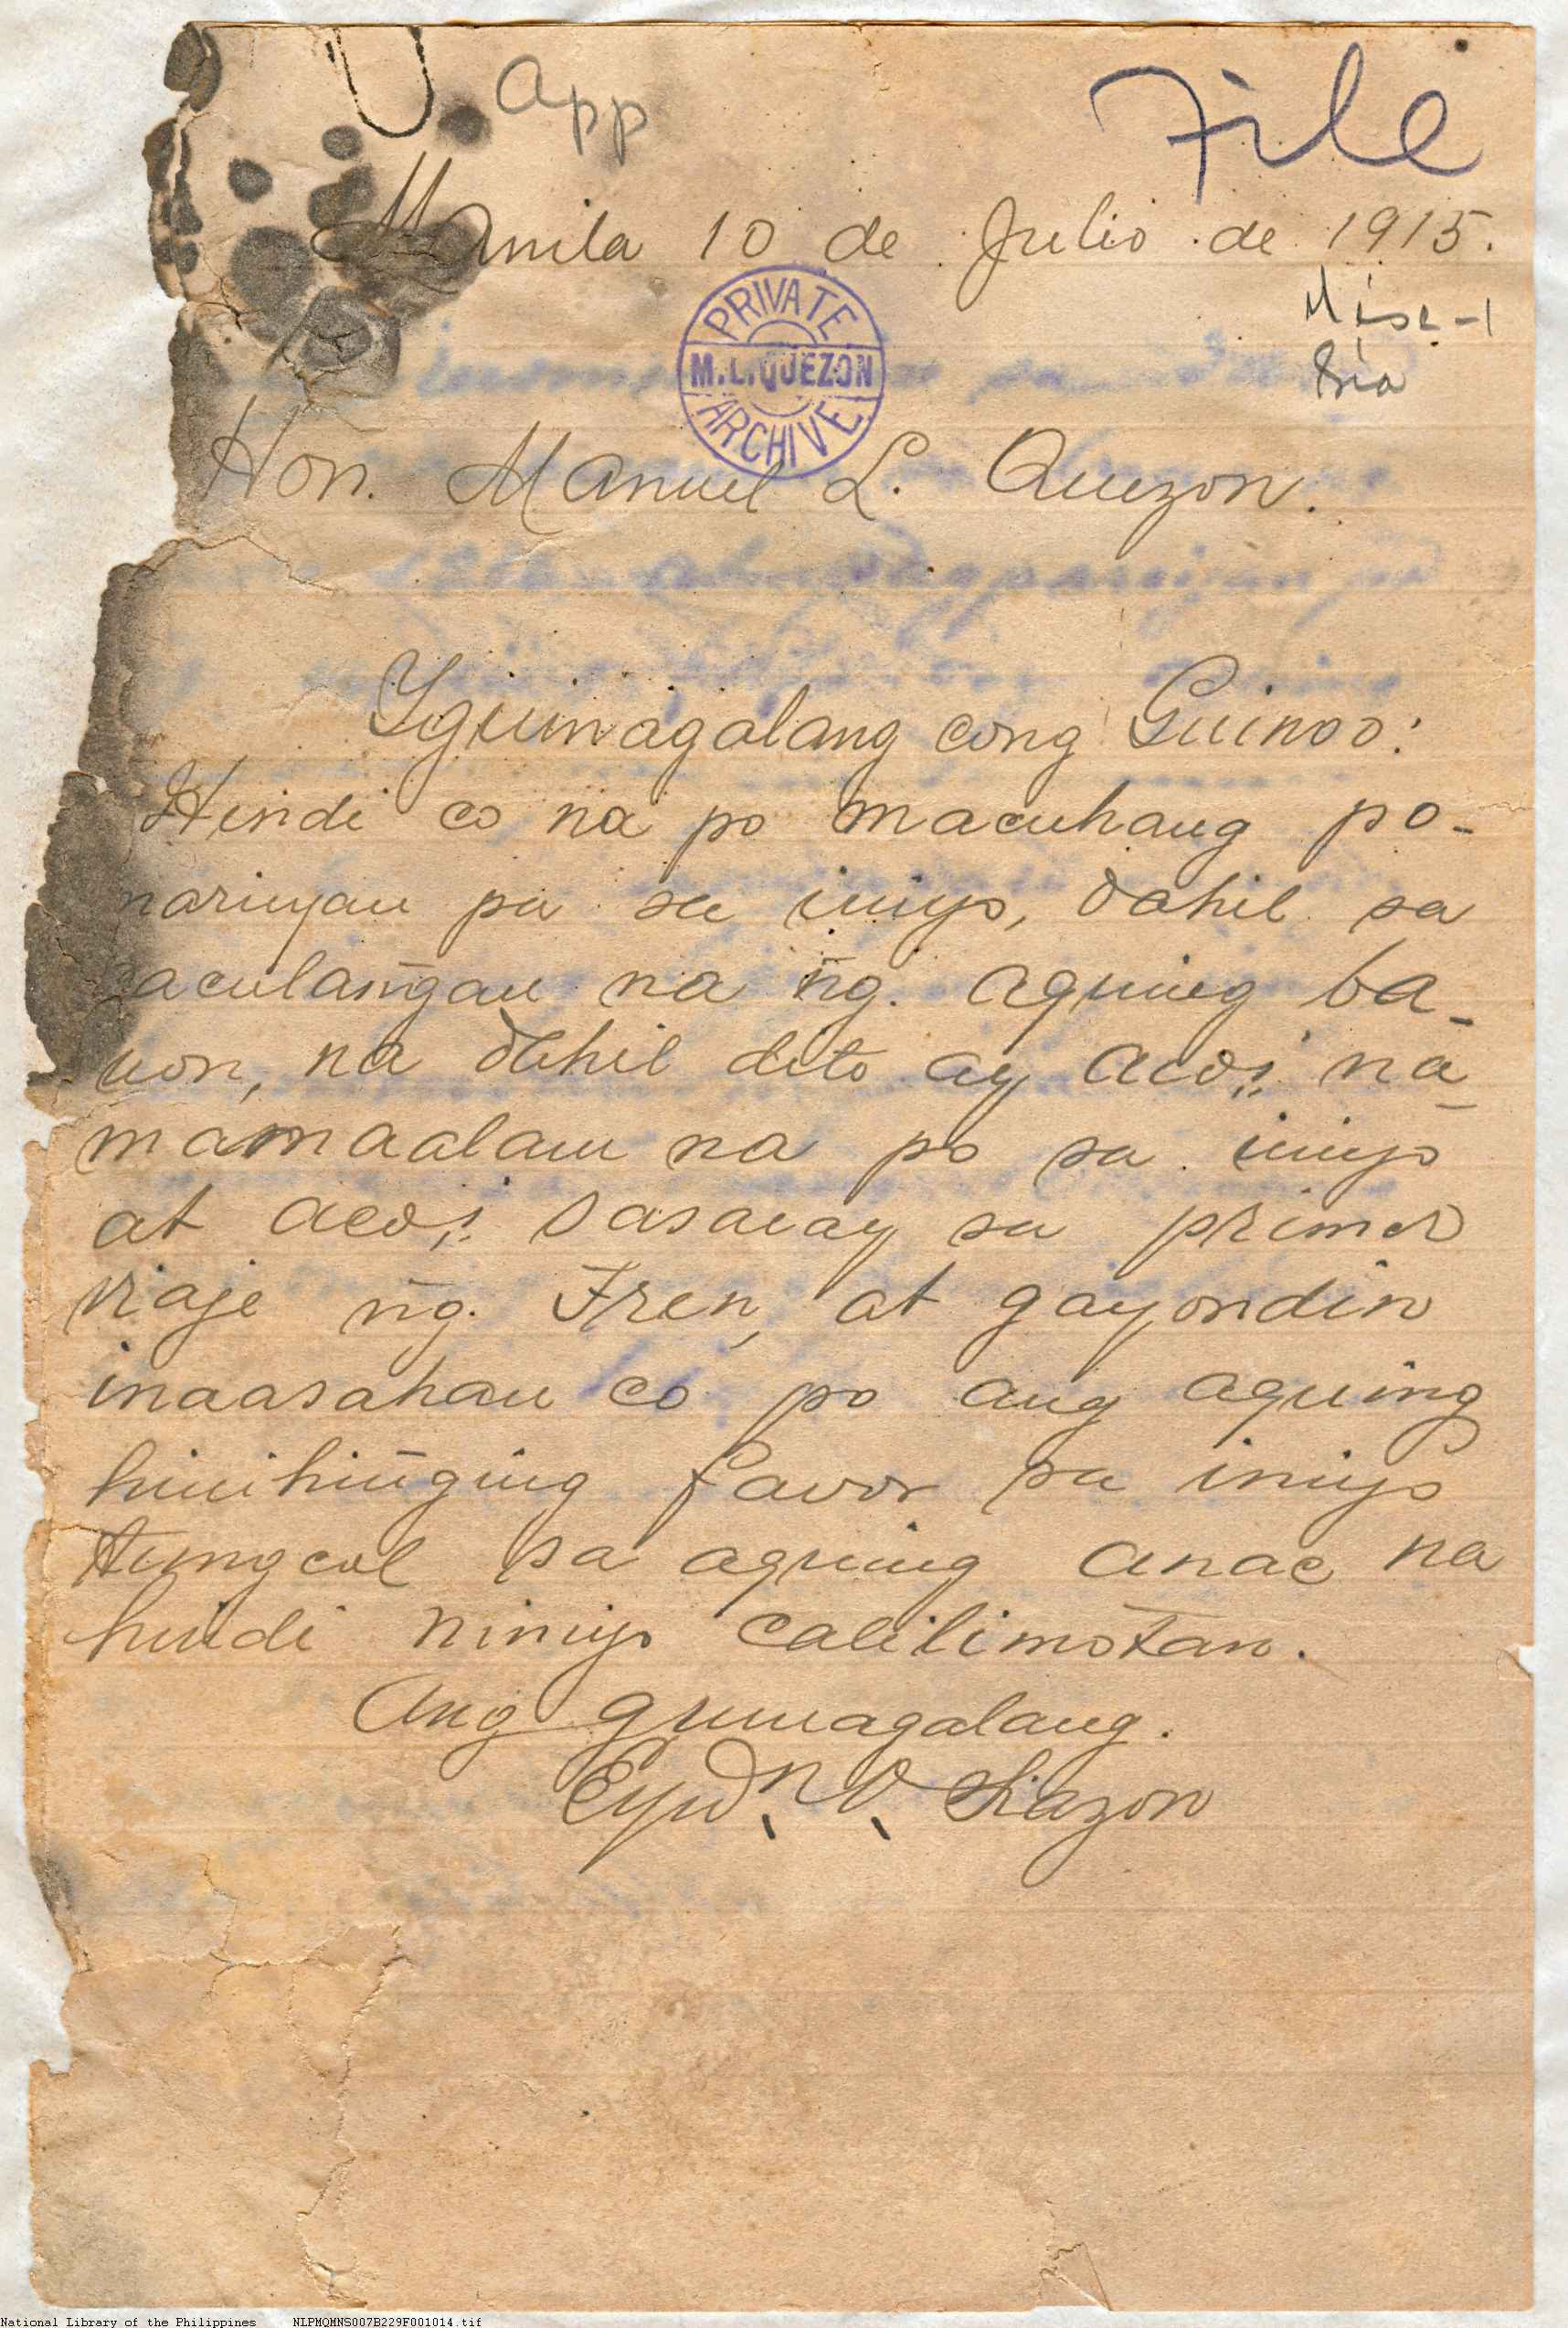 App
File
Manila 10 de Julio de 1915.
PRIVATE
M.L. QUEZON
ARCHIVE
Misc-1
Hon. Manuel L. Quezon.
Yguinagalang cong Guinoo:
Hindi co na po macuhang pa-
nariyan pa sa iniyo, dahil sa
caculañgan na ñg. aquing ba-
uon, na dahil dito ay acoi, na_
mamaalam na po sa iniyo
at acoi, sasacay sa primer
viaje ñg. Tren, at gayondin
inaasahan co po ang aquing
hinihiñging favor sa iniyo
tungcol sa aquing anac na
hindi niniyo calilimotan.
Ang gumagalang.
V. Liazon
National Library of the Philippines NLPMQMNS007B229F001014.tif